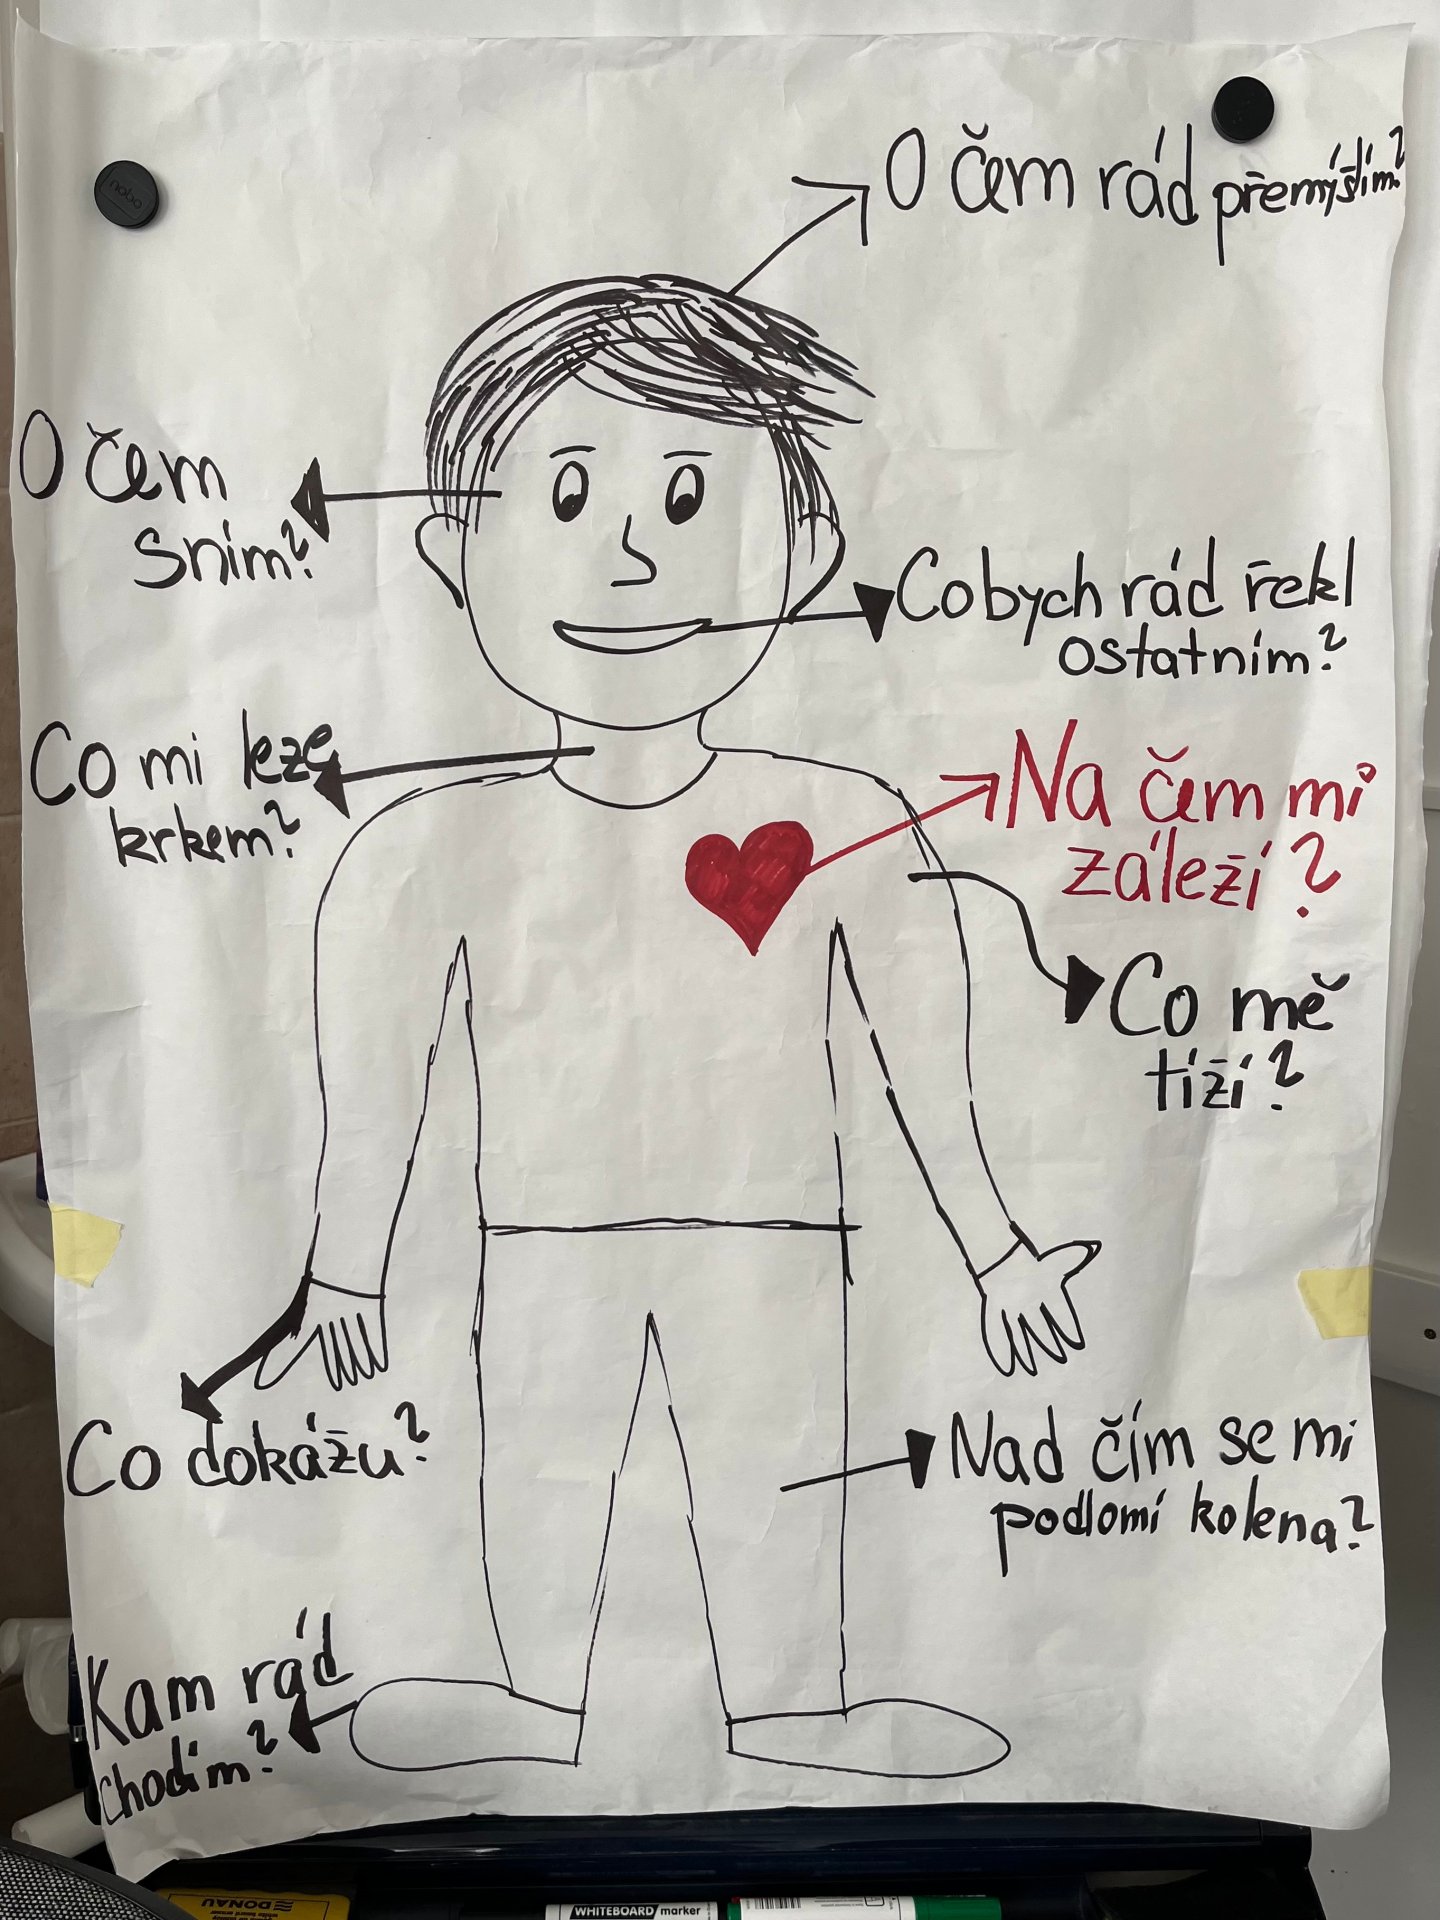 O čem rád přemýšlím?
O čem
sním?
Co bych rád řekl
ostatním?
Co mi leze
krkem?
Na čem mi
záleží?
Co mě
tíží?
Co dokážu?
Nad čím se mi
podlomí kolena?
Kam rád
chodím?
nobo
DONAU
WHITEBOARD marker